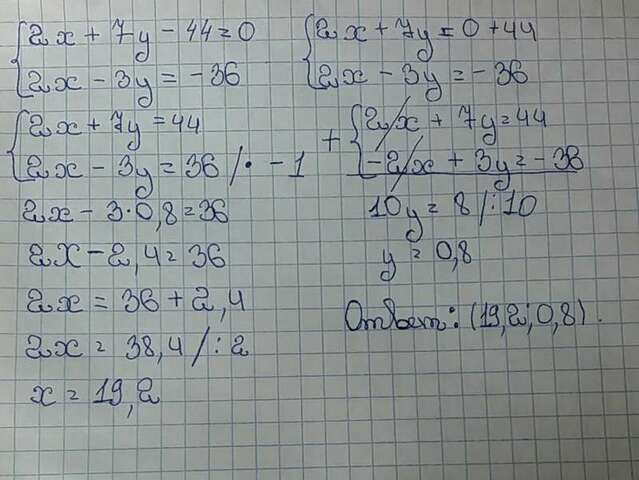 2x + 7y - 44 = 0
2x - 3y = -36
2x + 7y = 0 + 44
2x - 3y = -36
2x + 7y = 44
2x - 3y = 36 / · -1
+ 2x + 7y = 44
-2x + 3y = -36
10y = 8 /:10
y = 0,8
2x - 3·0,8 = 36
2x - 2,4 = 36
2x = 36 + 2,4
2x = 38,4 /:2
x = 19,2
Ответ: (19,2; 0,8).